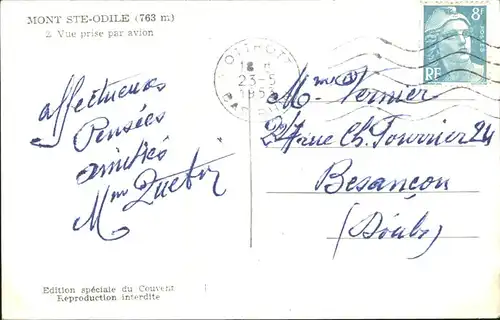 MONT STE-ODILE (763 m)
2. Vue prise par avion
8F
RF
23-5
1953
affectueuses
Pensées
amitiés
Mme
M. Vernier
rue Ch. Fourrier 24
Besançon
(Doubs)
Edition spéciale du Couvent
Reproduction interdite